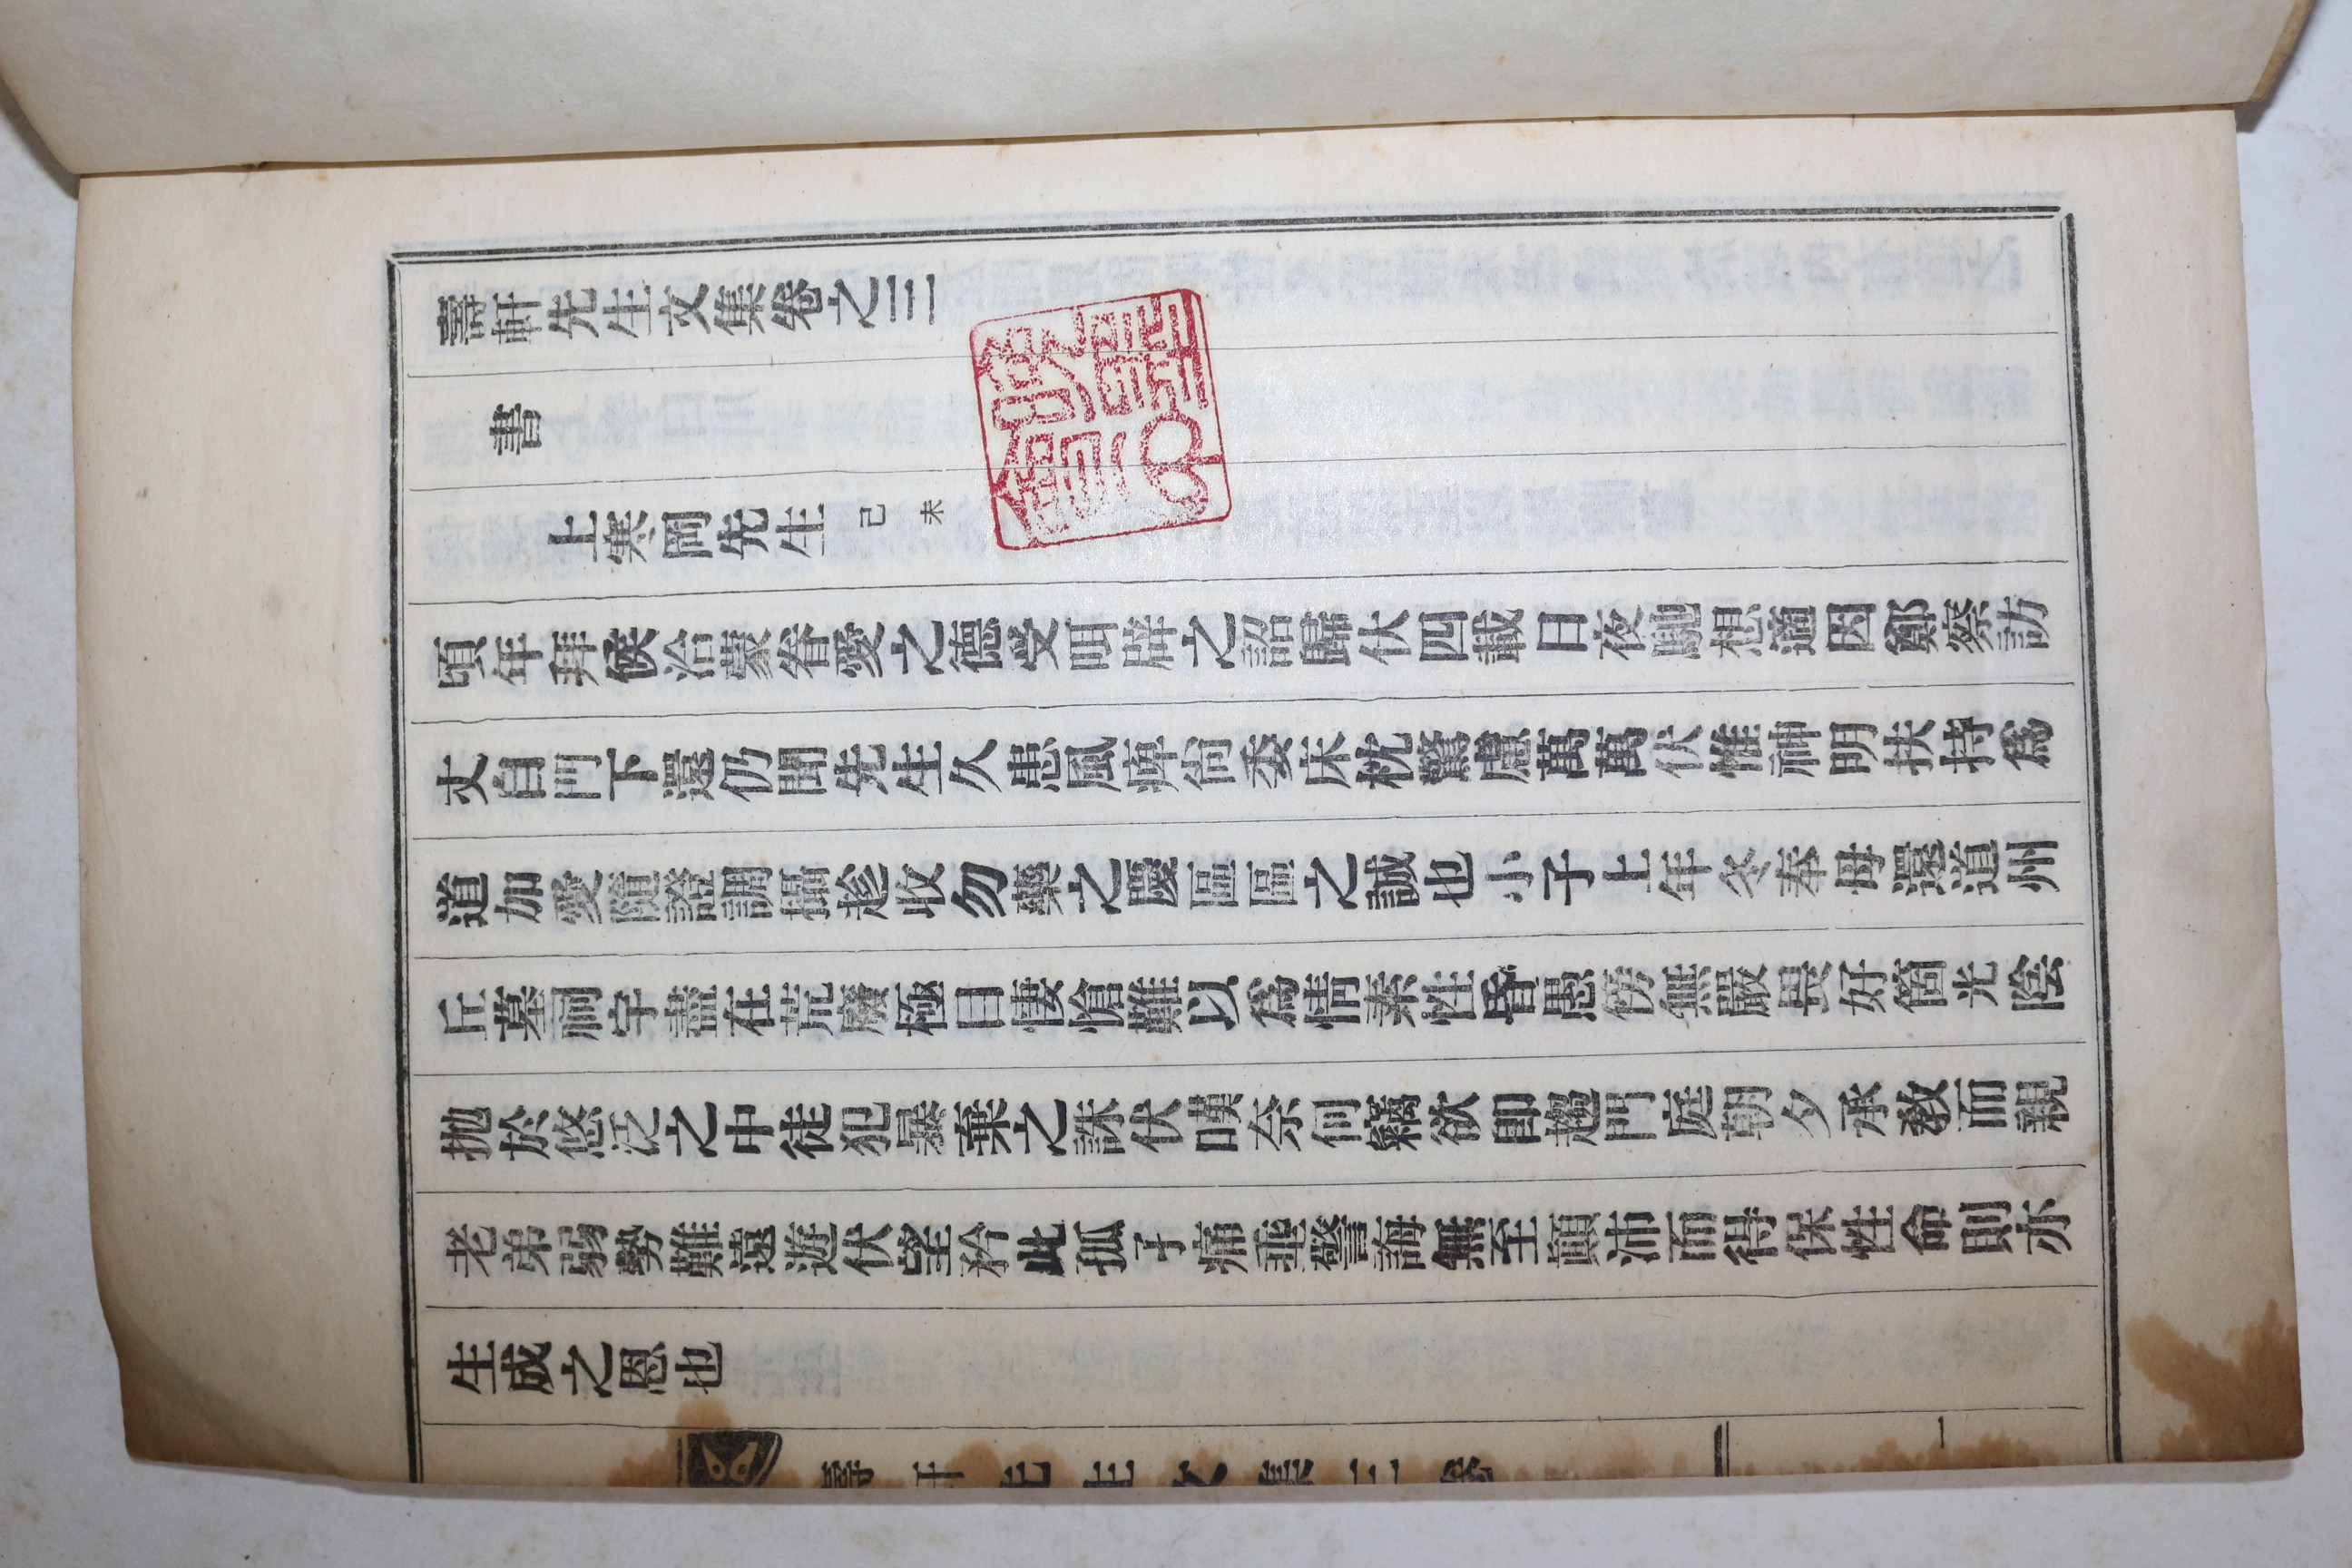 壽軒先生文集卷之三
書
上寒岡先生 己未
頃年拜候洽蒙眷愛之德受呬辟之詔歸伏四載日夜馳想適因鄭察訪
丈自門下還仍聞先生久患風痺尙委床枕驚慮萬萬伏惟神明扶持爲
道加愛隨證調攝趁收勿藥之慶區區之誠也小子上年冬奉母還道州
丘墓祠宇盡在荒廢極目悽愴難以爲情素性昏愚傍無嚴畏好箇光陰
抛於悠泛之中徒犯暴棄之誅伏嘆奈何竊欲卽趨門庭朝夕承敎而親
老弟弱勢難遠遊伏望矜此孤孑痛垂警誨無至顚沛而得保性命則亦
生成之恩也
壽軒先生文集三卷
一
晩墨
會印